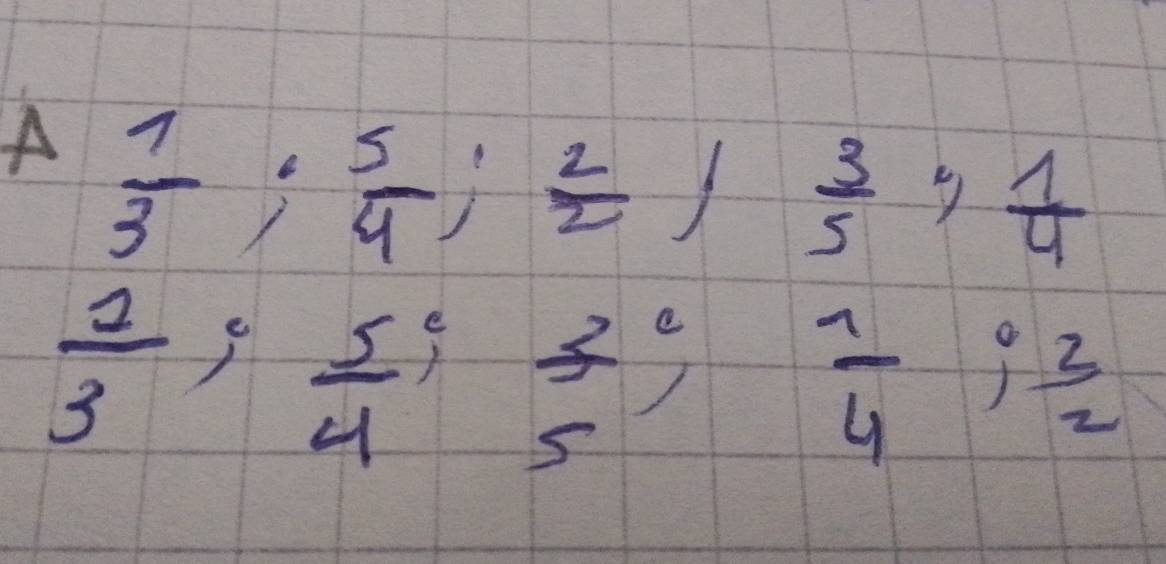 A 1/3 ; 5/4 ; 2/2 ) 3/5 ; 1/4
1/3 ; 5/4 ; 3/5 ; 1/4 ; 2/2